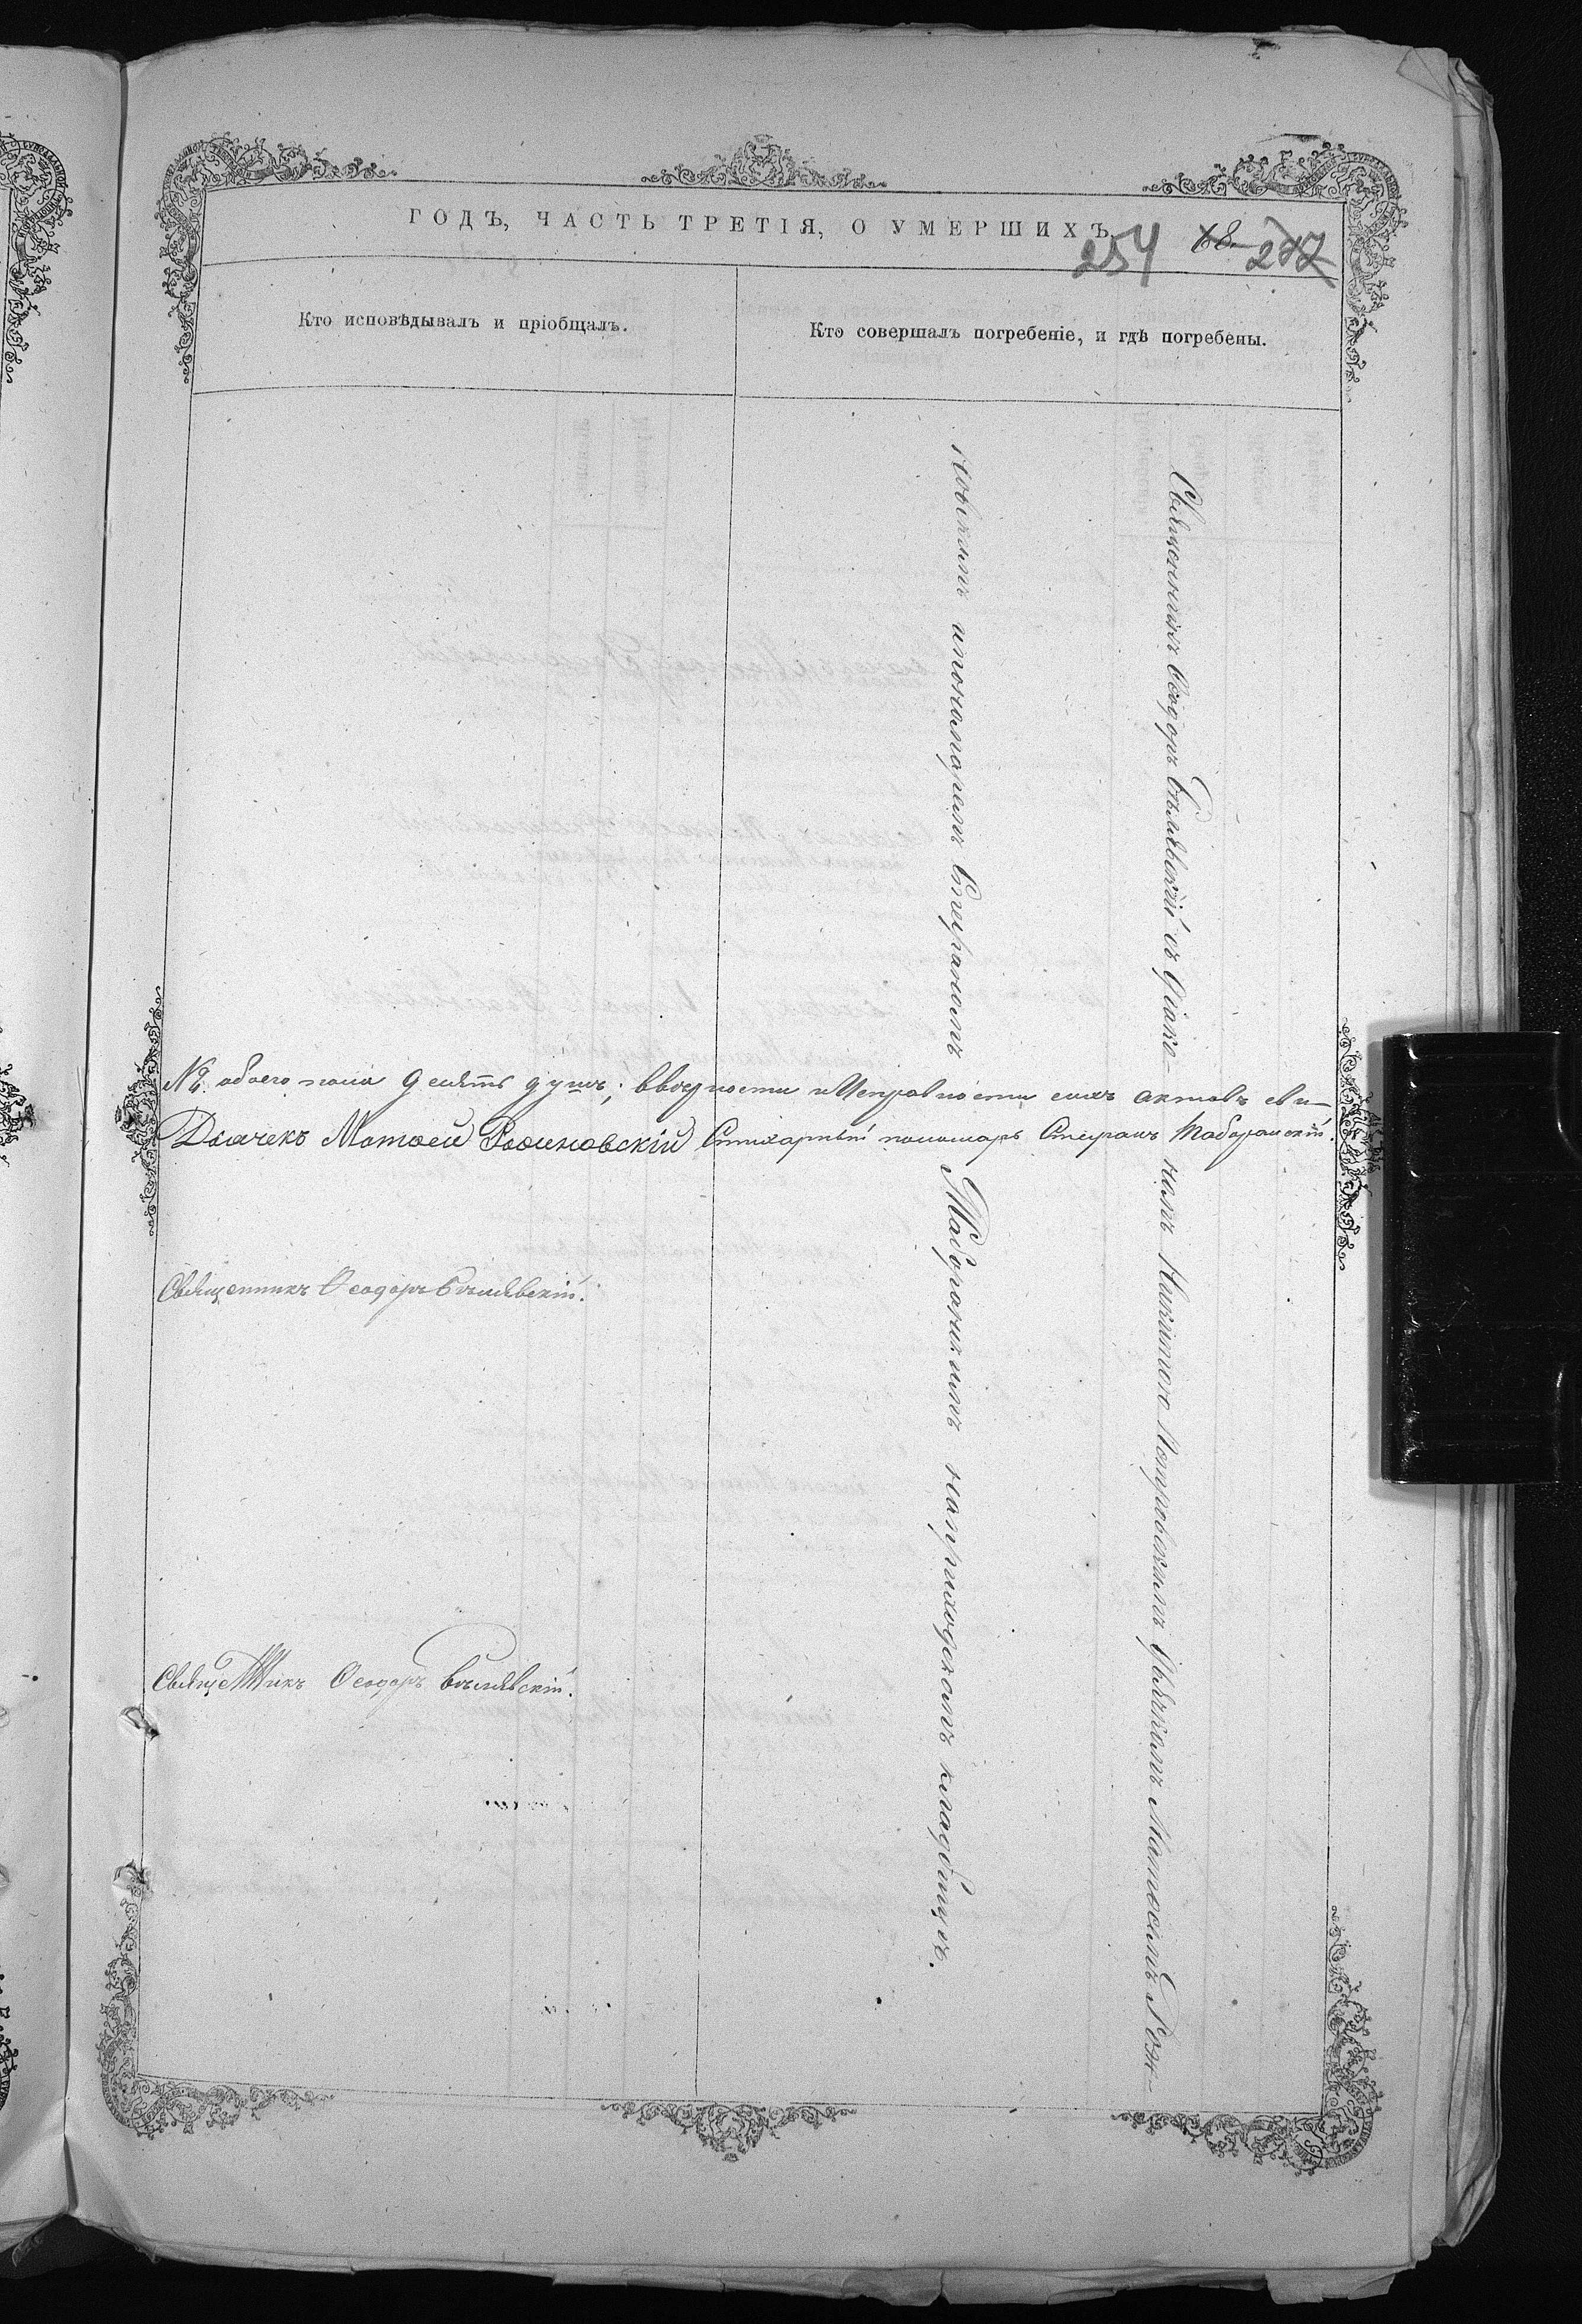 ГОДЪ, ЧАСТЬ ТРЕТІЯ, О УМЕРШИХЪ.
254
Кто исповѣдывалъ и пріобщалъ.
Кто совершалъ погребеніе, и гдѣ погребены.
Священникъ Ѳеодоръ Бѣлявскій съ діако-
номъ Никитою Петровскимъ дьячкомъ Матѳеемъ Рож-
новскимъ и пономаремъ Стефаномъ
Таборанскимъ на приходскомъ кладбищѣ.
обоего пола девять душъ; въ вѣрности и исправности сихъ актовъ сви-
Дьячекъ Матѳей Рожновскій Стихарный пономарь Стефанъ Таборанскій.
Священникъ Ѳеодоръ Бѣлявскій.
Священникъ Ѳеодоръ Бѣлявскій.